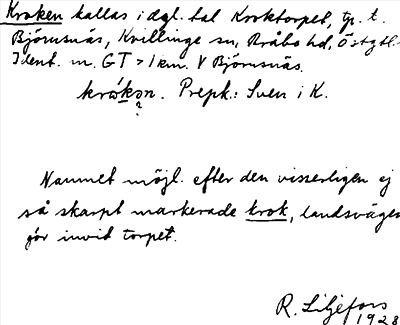 Kroken kallas i dgl. tal Kroktorpet, tp. t.
Björnsnäs, Kvillinge sn, Bråbo hd, Östgtl.
Ident. m. GT > 1 km. V Björnsnäs.
krókən. Prepk.: Sven i K.
?
Namnet möjl. efter den visserligen ej
så skarpt markerade krok, landsvägen
gör invid torpet.
R. Liljefors
1928